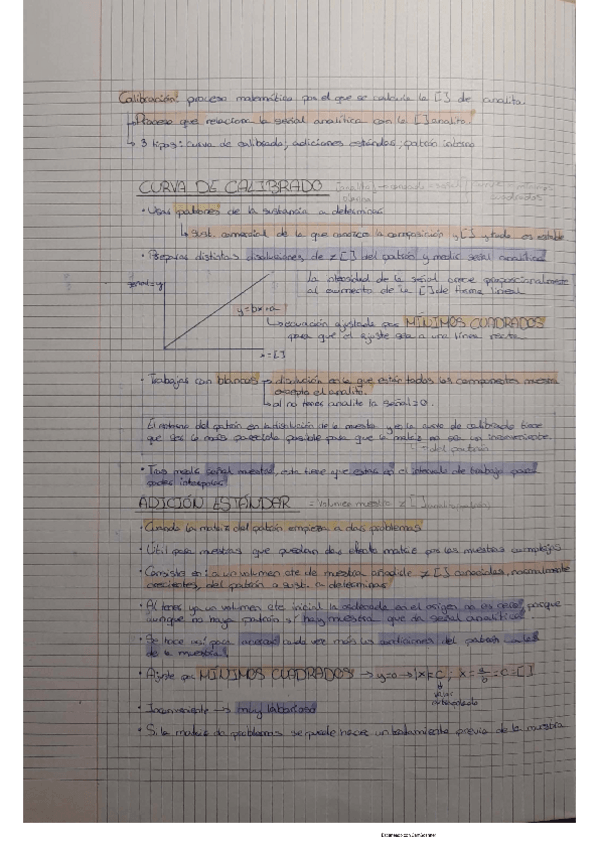 Calibración: proceso matemático por el que se calcula la [ ] de analito.
Proceso que relaciona la señal analítica con la [ ] analito.
3 tipos: curva de calibrado; adiciones estándar; patrón interno
CURVA DE CALIBRADO
· Usas patrones de la sustancia a determinar
sust. comercial de la que conozco la composición y [ ] y todo es estable
· Preparas distintas disoluciones de ≠ [ ] del patrón y medir señal analítica
señal=y
La intensidad de la señal crece proporcionalmente
al aumento de la [ ] de forma lineal
y=bx+a
ecuación ajustada por MÍNIMOS CUADRADOS
para que el ajuste sea a una línea recta
x=[ ]
· Trabajas con blancos → disolución en la que están todos los componentes muestra
excepto el analito.
al no tener analito la señal=0.
El entorno del patrón en la disolución de la muestra y en la curva de calibrado tiene
que ser lo más parecido posible para que la matriz no sea un inconveniente.
del patrón
· Tras medir señal muestra, esta tiene que estar en el intervalo de trabajo para
poder interpolar
ADICIÓN ESTÁNDAR
· Cuando la matriz del patrón empieza a dar problemas
· Útil para muestras que puedan dar efecto matriz por las muestras complejas
· Consiste en: a un volumen cte de muestra añadirle ≠ [ ] conocidas, normalmente
crecientes, del patrón o sust. a determinar
· Al tener ya un volumen cte inicial la ordenada en el origen no es cero, porque
aunque no haya patrón sí hay muestra que da señal analítica.
· Se hace así para acercar cada vez más las condiciones del patrón a las
de la muestra
· Ajuste por MÍNIMOS CUADRADOS → y=0 → |x|=C ; x = a/b = C = [ ]
valor
extrapolado
· Inconveniente → muy laborioso
· Si la matriz da problemas se puede hacer un tratamiento previo de la muestra